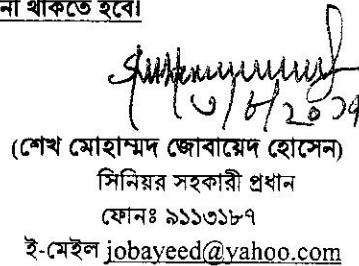 না থাকতে হবে।
৩/৮/২০১৭
(শেখ মোহাম্মদ জোবায়েদ হোসেন)
সিনিয়র সহকারী প্রধান
ফোনঃ ৯১১৩১৮৭
ই-মেইল jobayeed@yahoo.com